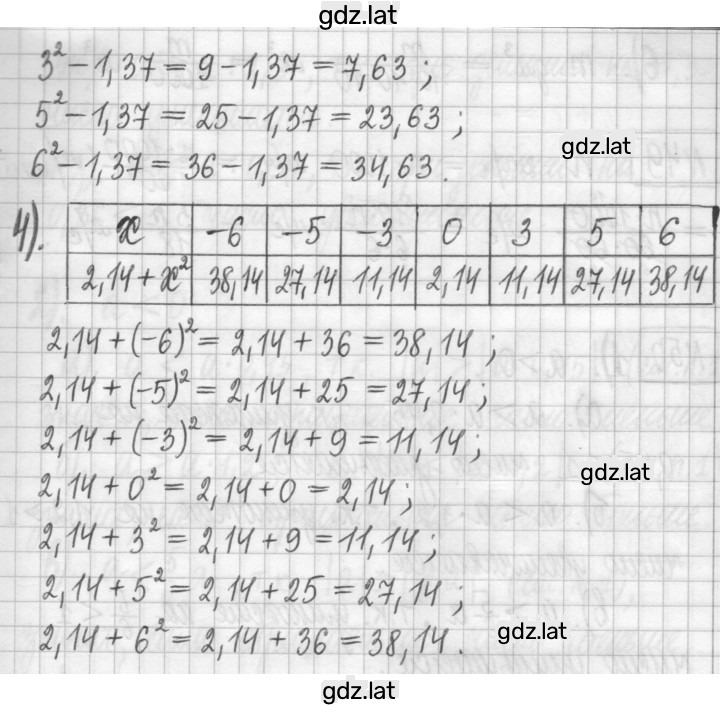 gdz.lat
3² − 1,37 = 9 − 1,37 = 7,63 ;
5² − 1,37 = 25 − 1,37 = 23,63 ;
gdz.lat
6² − 1,37 = 36 − 1,37 = 34,63 .
4). x −6 −5 −3 0 3 5 6
2,14 + x² 38,14 27,14 11,14 2,14 11,14 27,14 38,14
2,14 + (−6)² = 2,14 + 36 = 38,14 ;
2,14 + (−5)² = 2,14 + 25 = 27,14 ;
2,14 + (−3)² = 2,14 + 9 = 11,14 ;
gdz.lat
2,14 + 0² = 2,14 + 0 = 2,14 ;
2,14 + 3² = 2,14 + 9 = 11,14 ;
2,14 + 5² = 2,14 + 25 = 27,14 ;
2,14 + 6² = 2,14 + 36 = 38,14 .
gdz.lat
gdz.lat